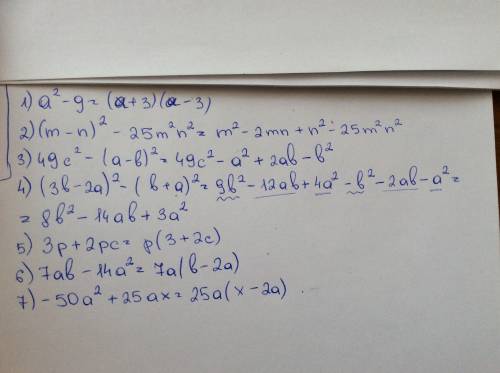 1) a² - 9 = (a+3)(a-3)
2) (m-n)² - 25m²n² = m² - 2mn + n² - 25m²n²
3) 49c² - (a-b)² = 49c² - a² + 2ab - b²
4) (3b-2a)² - (b+a)² = 9b² - 12ab + 4a² - b² - 2ab - a² =
= 8b² - 14ab + 3a²
5) 3p + 2pc = p(3+2c)
6) 7ab - 14a² = 7a(b-2a)
7) -50a² + 25ax = 25a(x-2a)